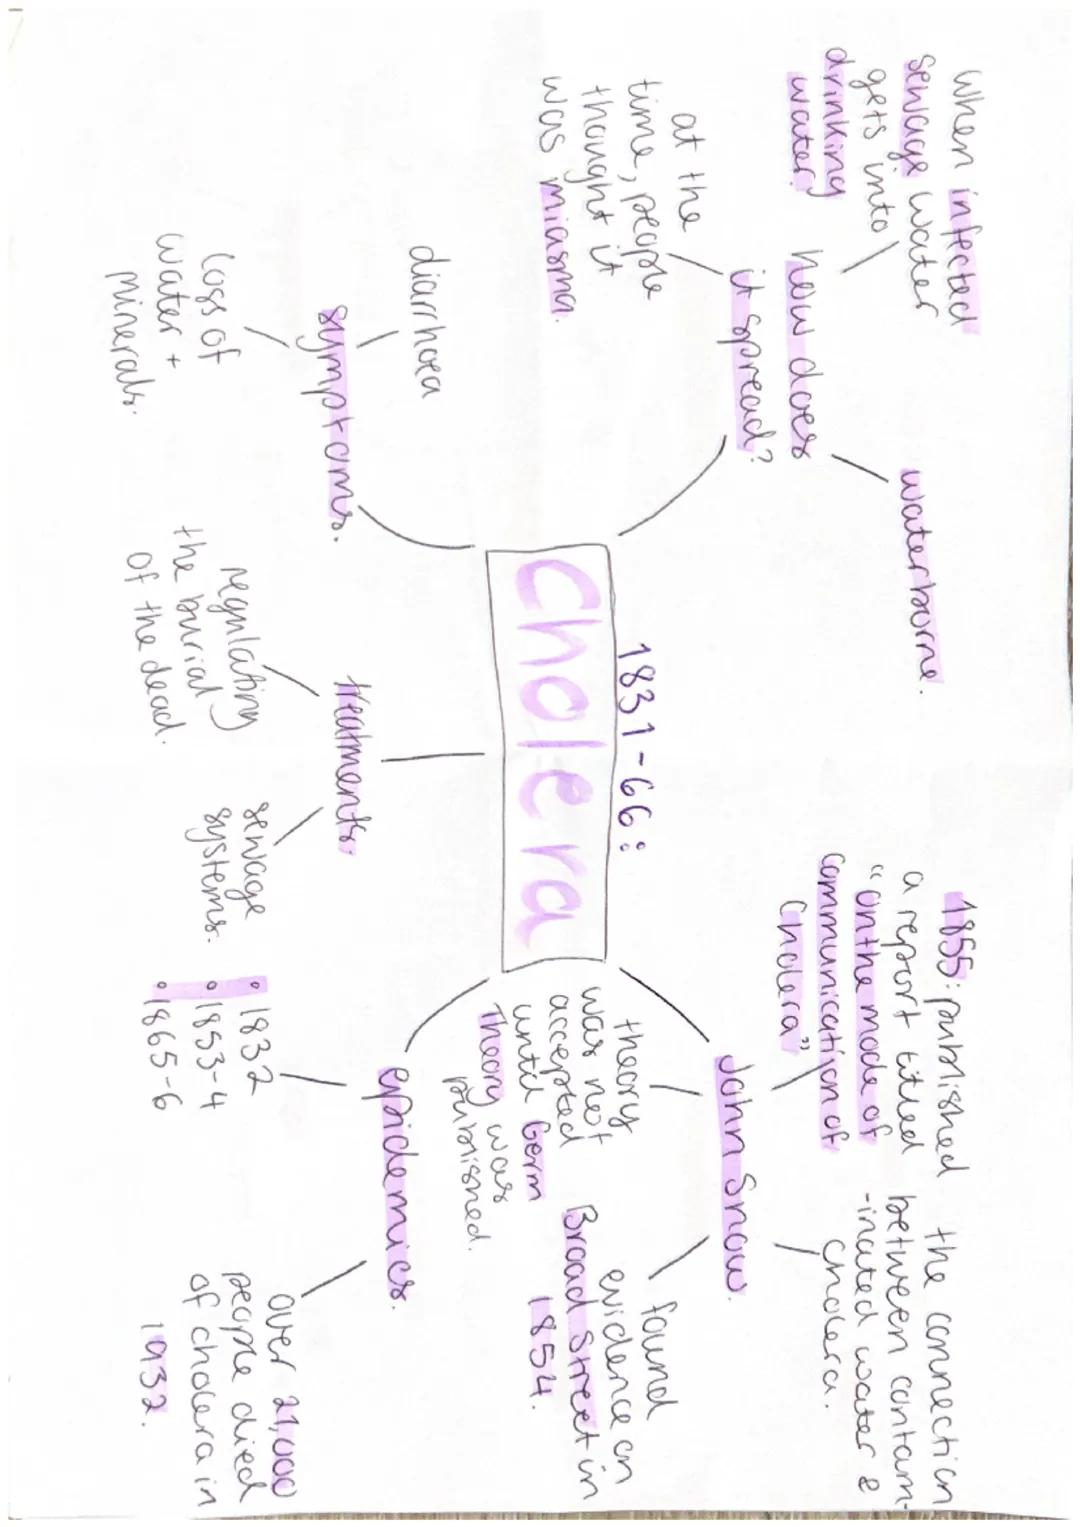 1831-66:
Cholera
how does
it spread?
when infected
sewage water
gets into
drinking
water.
waterborne.
at the
time, people
thought it
was miasma.
John Snow.
1855: published
a report titled
"on the mode of
communication of
cholera"
the connection
between contam-
-inated water &
cholera.
theory
was not
accepted
until Germ
Theory was
published.
found
evidence on
Broad Street in
1854.
symptoms.
diarrhoea
loss of
water +
minerals.
treatments.
regulating
the burial
of the dead.
sewage
systems.
epidemics.
• 1832
• 1853-4
• 1865-6
over 21,000
people died
of cholera in
1932.